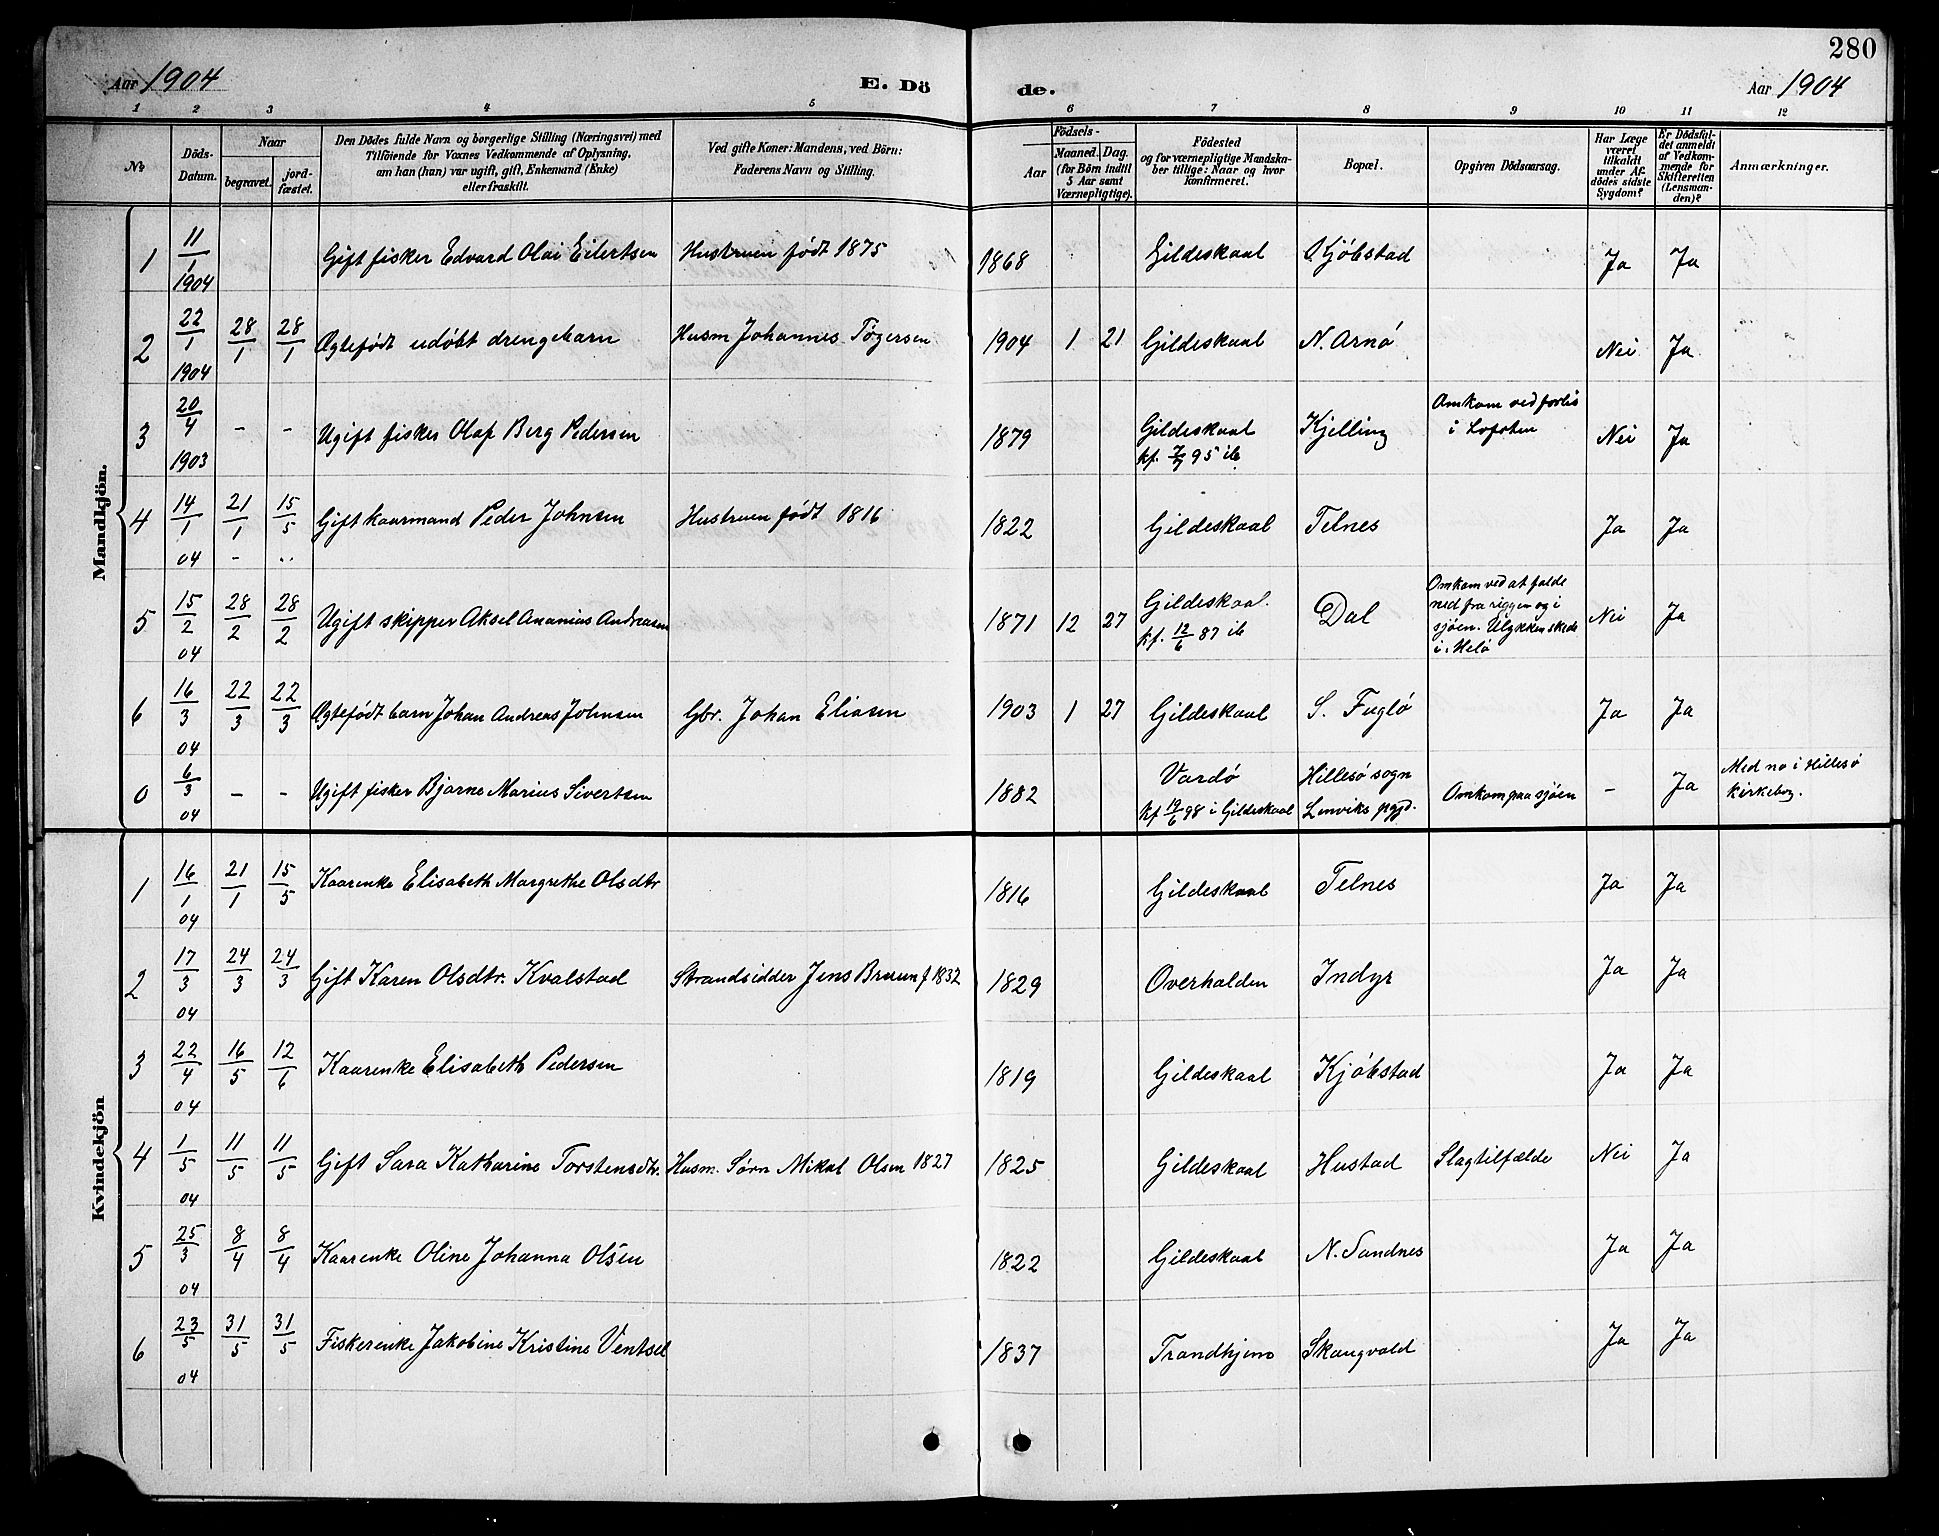 280
Aar 1904 E. Dö de. Aar 1904
1 2 3 4 5 6 7 8 9 10 11 12
№ Döds-Datum. Naar begravet. jord-fæstet. Den Dödes fulde Navn og borgerlige Stilling (Næringsvei) med Tilföiende for Voxnes Vedkommende af Oplysning, om han (hun) var ugift, gift, Enkemand (Enke) eller fraskilt. Ved gifte Koner: Mandens, ved Börn: Faderens Navn og Stilling. Födsels- Aar Maaned. Dag. (for Börn indtil 5 Aar samt Værnepligtige). Födested og for værnepligtige Mandska-ber tillige: Naar og hvor konfirmeret. Bopæl. Opgiven Dödsaarsag. Har Læge været tilkaldt under Af-dödes sidste Sygdom? Er Dödsfal-det anmeldt af Vedkom-mende for Skifteretten (Lensman-den)? Anmærkninger.
Mandkjön.
1 11/1 1904 Gift fisker Edvard Olai Eilertsen Hustruen født 1875 1868 Gildeskaal Kjøbstad Ja Ja
2 22/1 1904 28/1 28/1 Ægtefødt udøbt drengebarn Husm Johannes Tøgersen 1904 1 21 Gildeskaal N. Arnø Nei Ja
3 20/4 1903 - - Ugift fisker Olaf Berg Pedersen 1879 Gildeskaal kf. 7/7 95 ib Kjelling Omkom ved forlis i Lofoten Nei Ja
4 14/1 04 21/1 - 15/5 .. Gift kaarmand Peder Johnsen Hustruen født 1816 1822 Gildeskaal Telnes Ja Ja
5 15/2 04 28/2 28/2 Ugift skipper Aksel Ananias Andreasen 1871 12 27 Gildeskaal. kf. 12/6 87 ib Dal Omkom ved at falde ned fra riggen og i sjøen. Ulykken skede i Melø Nei Ja
6 16/3 04 22/3 22/3 Ægtefødt barn Johan Andreas Johnsen Gbr. Johan Eliasen 1903 1 27 Gildeskaal S. Fuglø Ja Ja
0 6/3 04 - - Ugift fisker Bjarne Marius Sivertsen 1882 Vardø kf 19/6 98 i Gildeskaal Hillesø sogn Lenviks pgjd. Omkom paa sjøen - Ja Med no i Hillesø kirkebog.
Kvindekjön
1 16/1 04 21/1 15/5 Kaarenke Elisabeth Margrethe Olsdtr 1816 Gildeskaal Telnes Ja Ja
2 17/3 04 24/3 24/3 Gift Karen Olsdtr. Kvalstad Strandsidder Jens Bruun f 1832 1829 Overhalden Indyr Ja Ja
3 22/4 04 16/5 12/6 Kaarenke Elisabeth Pedersen 1819 Gildeskaal Kjøbstad Ja Ja
4 1/5 04 11/5 11/5 Gift Sara Katharine Torstensdtr. Husm. Sørn Mikal Olsen 1827 1825 Gildeskaal Hustad Slagtilfælde Nei Ja
5 25/3 04 8/4 8/4 Kaarenke Oline Johanna Olsen 1822 Gildeskaal N. Sandnes Ja Ja
6 23/5 04 31/5 31/5 Fiskerenke Jakobine Kristine Ventsel 1837 Trondhjem Skaugvold Ja Ja